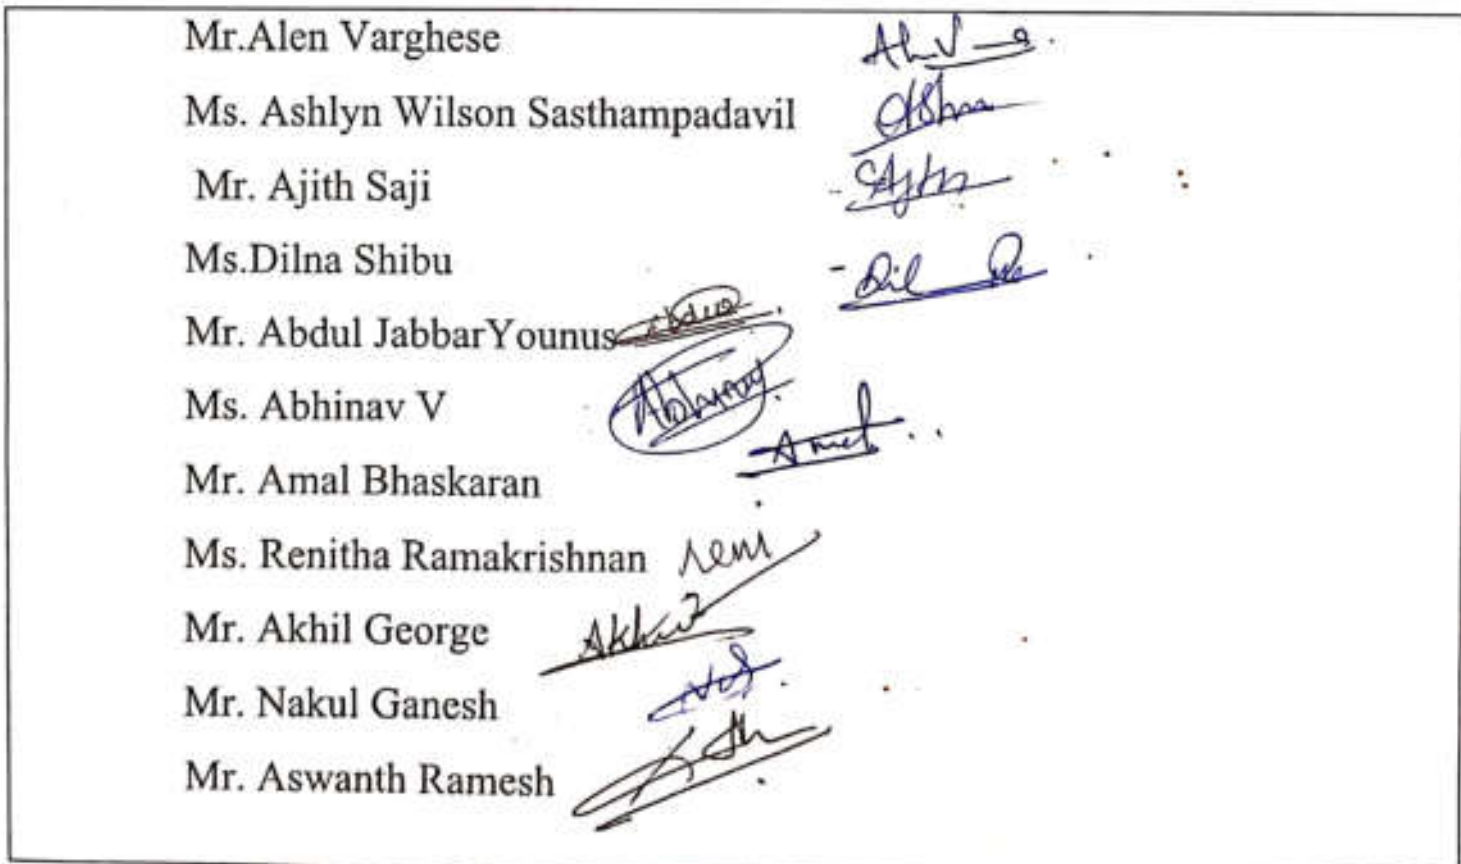 Mr.Alen Varghese
Ms. Ashlyn Wilson Sasthampadavil
Mr. Ajith Saji
Ms.Dilna Shibu
Mr. Abdul JabbarYounus
Ms. Abhinav V
Mr. Amal Bhaskaran Amal
Ms. Renitha Ramakrishnan reni
Mr. Akhil George Akhil
Mr. Nakul Ganesh
Mr. Aswanth Ramesh